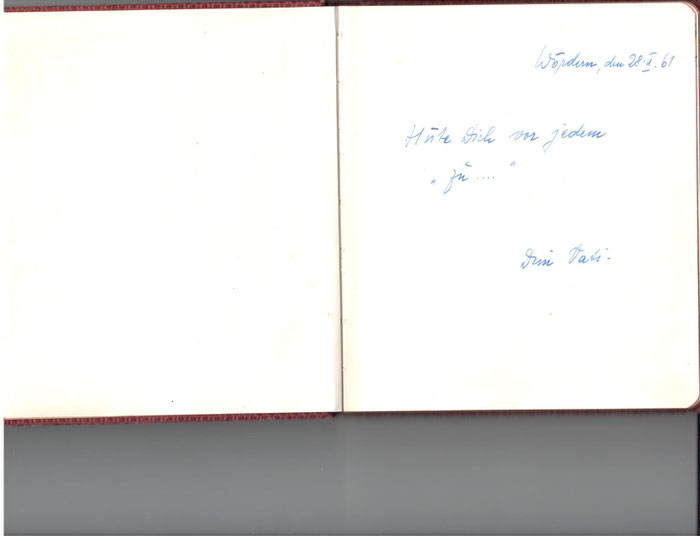 Wördern, den 28.II.61
Hüte Dich vor jedem
„ zu .... "
Dein Vati.